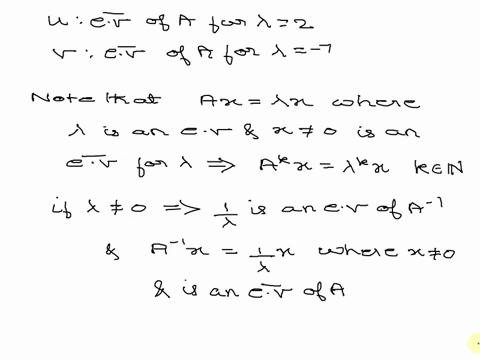 u : e.v̅ of A for λ = 2
v : e.v̅ of A for λ = -7
Note that Ax = λx where
λ is an e.v & x ≠ 0 is an
e.v̅ for λ ⇒ Aᵏx = λᵏx k∈ℕ
if λ ≠ 0 ⇒ 1/λ is an e.v of A⁻¹
& A⁻¹x = 1/λ x where x ≠ 0
& is an e.v̅ of A